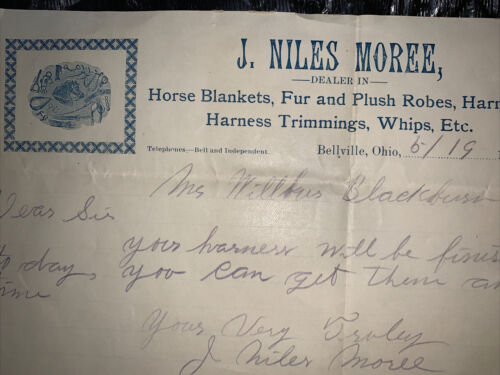 J. NILES MOREE,
DEALER IN
Horse Blankets, Fur and Plush Robes, Harn
Harness Trimmings, Whips, Etc.
Telephones,—Bell and Independent.
Bellville, Ohio, 5/19
Mr Willbur Blackburn
Dear Sir
your harness will be finis
to day, you can get them an
time
Your Very Truley
J Niles Moree